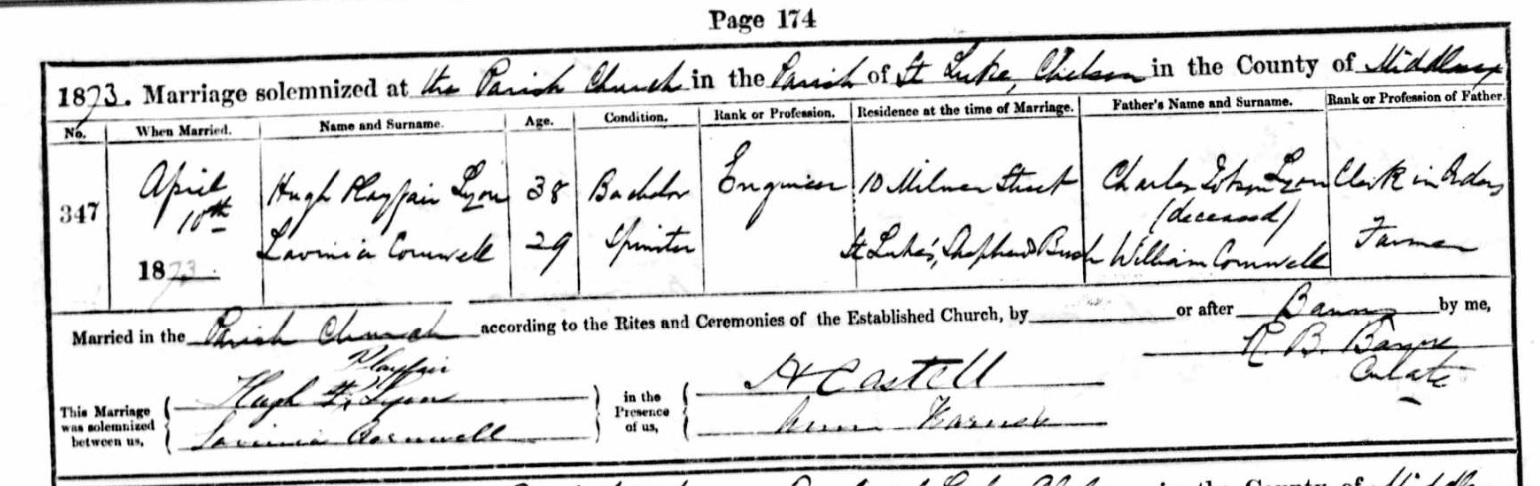 Page 174
1873. Marriage solemnized at the Parish Church in the Parish of St Luke, Chelsea in the County of Middlesex
No. When Married. Name and Surname. Age. Condition. Rank or Profession. Residence at the time of Marriage. Father's Name and Surname. Rank or Profession of Father.
347 April 10th 1873. Hugh Playfair Lyon 38 Bachelor Engineer 10 Milner Street Charles Lyon (deceased) Clerk in Orders
Lavinia Cornwell 29 Spinster St Luke's, Shepherds Bush William Cornwell Farmer
Married in the Parish Church according to the Rites and Ceremonies of the Established Church, by or after Banns by me,
R. B. Curate
This Marriage was solemnized between us,
Hugh Playfair Lyon
Lavinia Cornwell
in the Presence of us,
H Castell